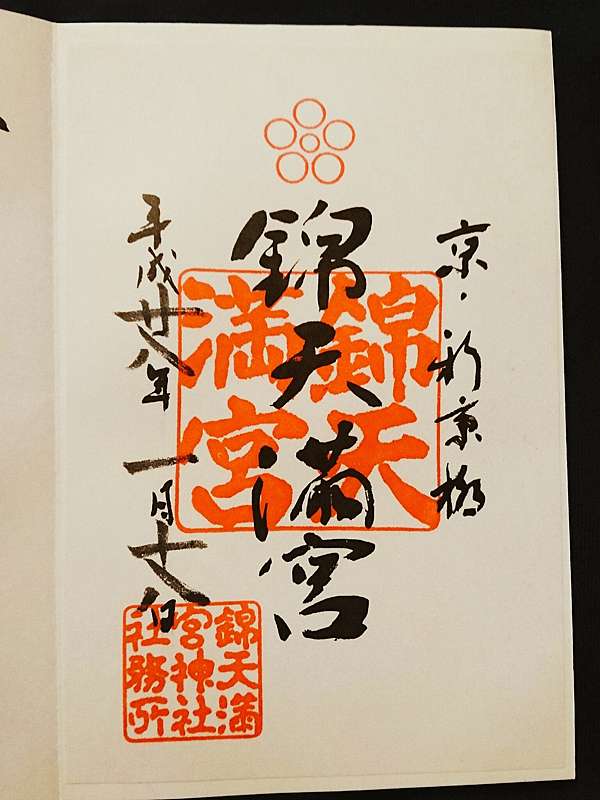 京・新京極
錦天満宮
平成廿八年 一月十八日
錦天
満宮
錦天満
宮神社
社務所